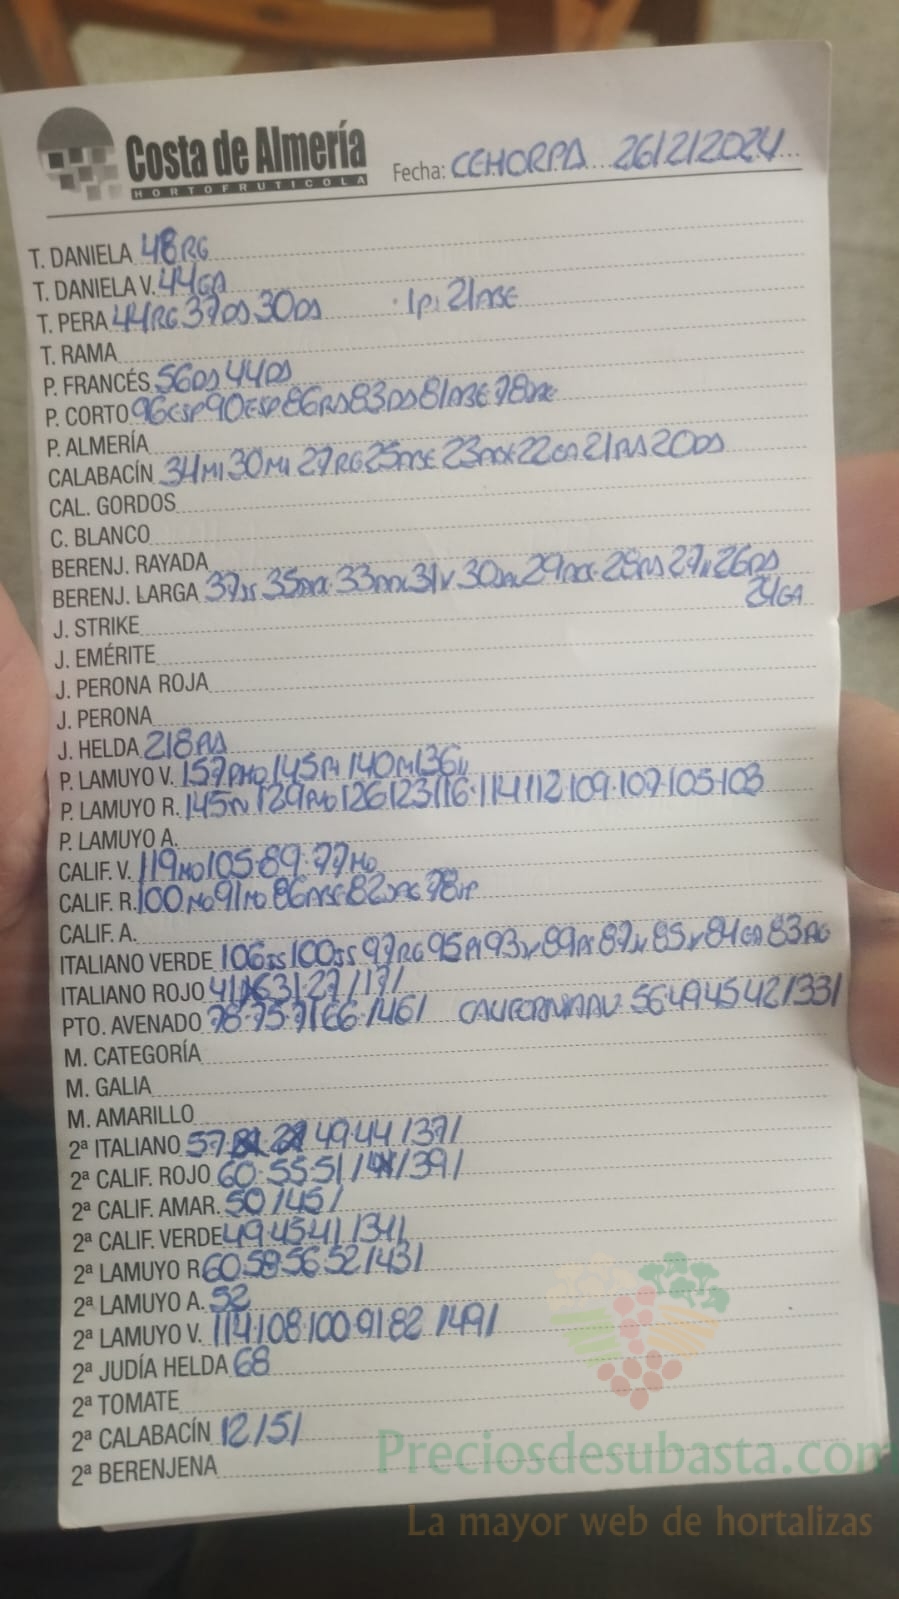 Costa de Almería
HORTOFRUTICOLA
Fecha: CEHORPA 26/2/2024
T. DANIELA 48RG
T. DANIELA V. 44GA
T. PERA 44RG 37DS 30DS
T. RAMA
P. FRANCÉS 56DS 44DS
P. CORTO 96ESP 90ESP 86 83DS 81 78
P. ALMERÍA
CALABACÍN 34MI 30MI 27RG 25 23 22GA 21 20DS
CAL. GORDOS
C. BLANCO
BERENJ. RAYADA
BERENJ. LARGA 37 35 33 31 30 29 28 27 26
24GA
J. STRIKE
J. EMÉRITE
J. PERONA ROJA
J. PERONA
J. HELDA 218
P. LAMUYO V. 157 145 140 136
P. LAMUYO R. 145 129 126 123 116·114 112·109·107·105·103
P. LAMUYO A.
CALIF. V. 119MO 105·89·77MO
CALIF. R. 100MO 91MO 86 82 78
CALIF. A.
ITALIANO VERDE 106SS 100SS 97RG 95 93 89 87 85 84GA 83
ITALIANO ROJO 41 31·27/17/
PTO. AVENADO 78·75·71 66·/46/ 56 49 45 42/33/
M. CATEGORÍA
M. GALIA
M. AMARILLO
2ª ITALIANO 57 49·44/37/
2ª CALIF. ROJO 60·55·51/ /39/
2ª CALIF. AMAR. 50/45/
2ª CALIF. VERDE 49 45 41/34/
2ª LAMUYO R 60 58 56 52/43/
2ª LAMUYO A. 52
2ª LAMUYO V. 114 108·100 91 82 /49/
2ª JUDÍA HELDA 68
2ª TOMATE
2ª CALABACÍN 12/5/
2ª BERENJENA
Preciosdesubasta.com
La mayor web de hortalizas